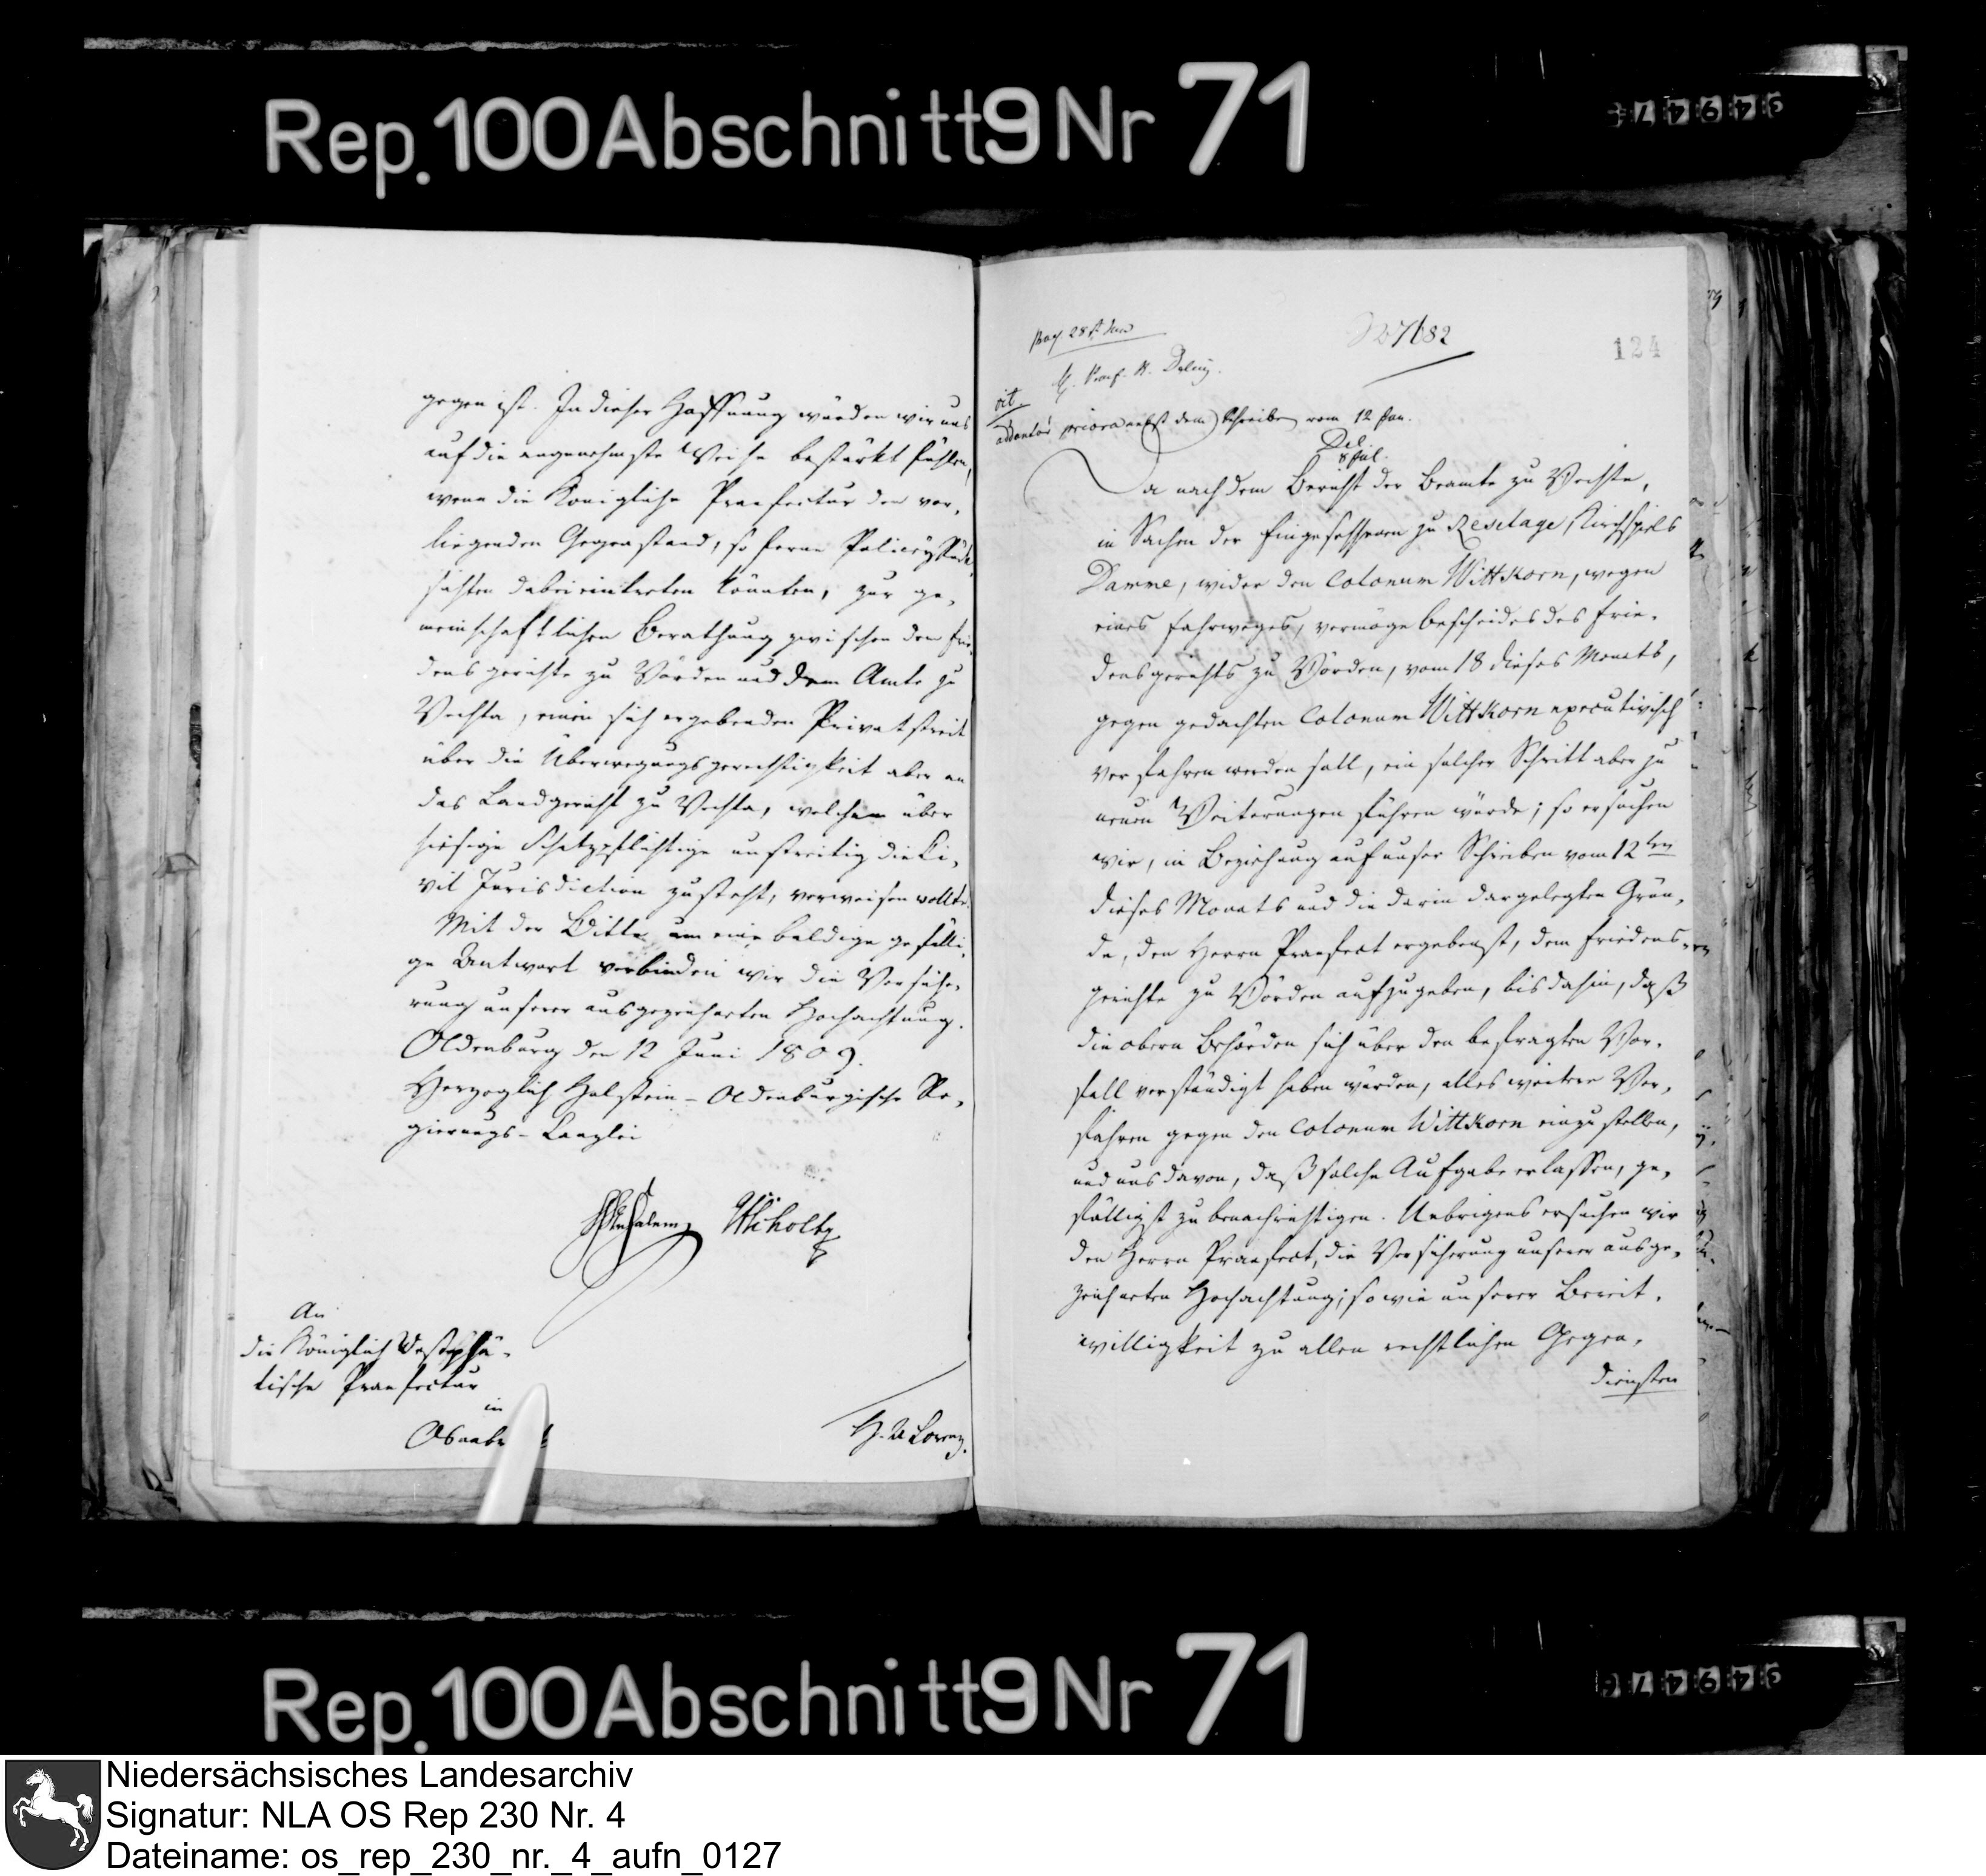 Rep. 100 Abschnitt 9 Nr 71
gegen ist. In dieser Hoffnung würden wir uns
auf die angenehmste Weise bestärkt fühlen,
wenn die Königliche Praefectur den vor-
liegenden Gegenstand, so ferne Policey Rück-
sichten dabei eintreten könnten, zur ge-
meinschaftlichen Berathung zwischen dem Frie-
densgerichte zu Vörden und dem Amte zu
Vechta, einen sich ergebenden Privatstreit
über die Überwegungsgerechtigkeit aber an
das Landgericht zu Vechta, welchem über
hiesige Schatzpflichtige unstreitig die Ci-
vil Jurisdiction zusteht, verweisen wollte.
Mit der Bitte um eine baldige gefälli-
ge Antwort verbinden wir die Versiche-
rung unserer ausgezeichneten Hochachtung.
Oldenburg den 12 Juni 1809.
Herzoglich Holstein-Oldenburgische Re-
gierungs-Canzlei
Scholtz
An
die Königlich Westphä-
lische Praefectur
in
Osnabr
H. A. Lorenz.
27682
124
priora nebst dem Schreiben vom 12 Jun.
Del.
8 Jul.
Da nach dem Bericht der Beamte zu Vechte,
in Sachen der Eingesessenen zu Reselage, Kirchspiels
Damme, wider den Colonum Wittkorn, wegen
eines Fahrweges, vermöge Bescheides des Frie-
densgerichts zu Vörden, vom 18 dieses Monats,
gegen gedachten Colonum Wittkorn executivisch
verfahren werden soll, ein solcher Schritt aber zu
neuen Weiterungen führen würde; so ersuchen
wir, in Beziehung auf unser Schreiben vom 12ten
dieses Monats und die darin dargelegten Grün-
de, den Herrn Praefect ergebenst, dem Friedens-
gerichte zu Vörden aufzugeben, bis dahin, daß
die obern Behörden sich über den befragten Vor-
fall verständigt haben würden, alles weitere Ver-
fahren gegen den Colonum Wittkorn einzustellen,
und uns davon, daß solche Aufgabe erlassen, ge-
fälligst zu benachrichtigen. Uebrigens ersuchen wir
den Herrn Praefect, die Versicherung unserer ausge-
zeichneten Hochachtung; so wie unserer Bereit-
willigkeit zu allen rechtlichen Gegen-
diensten
Rep. 100 Abschnitt 9 Nr 71
Niedersächsisches Landesarchiv
Signatur: NLA OS Rep 230 Nr. 4
Dateiname: os_rep_230_nr._4_aufn_0127